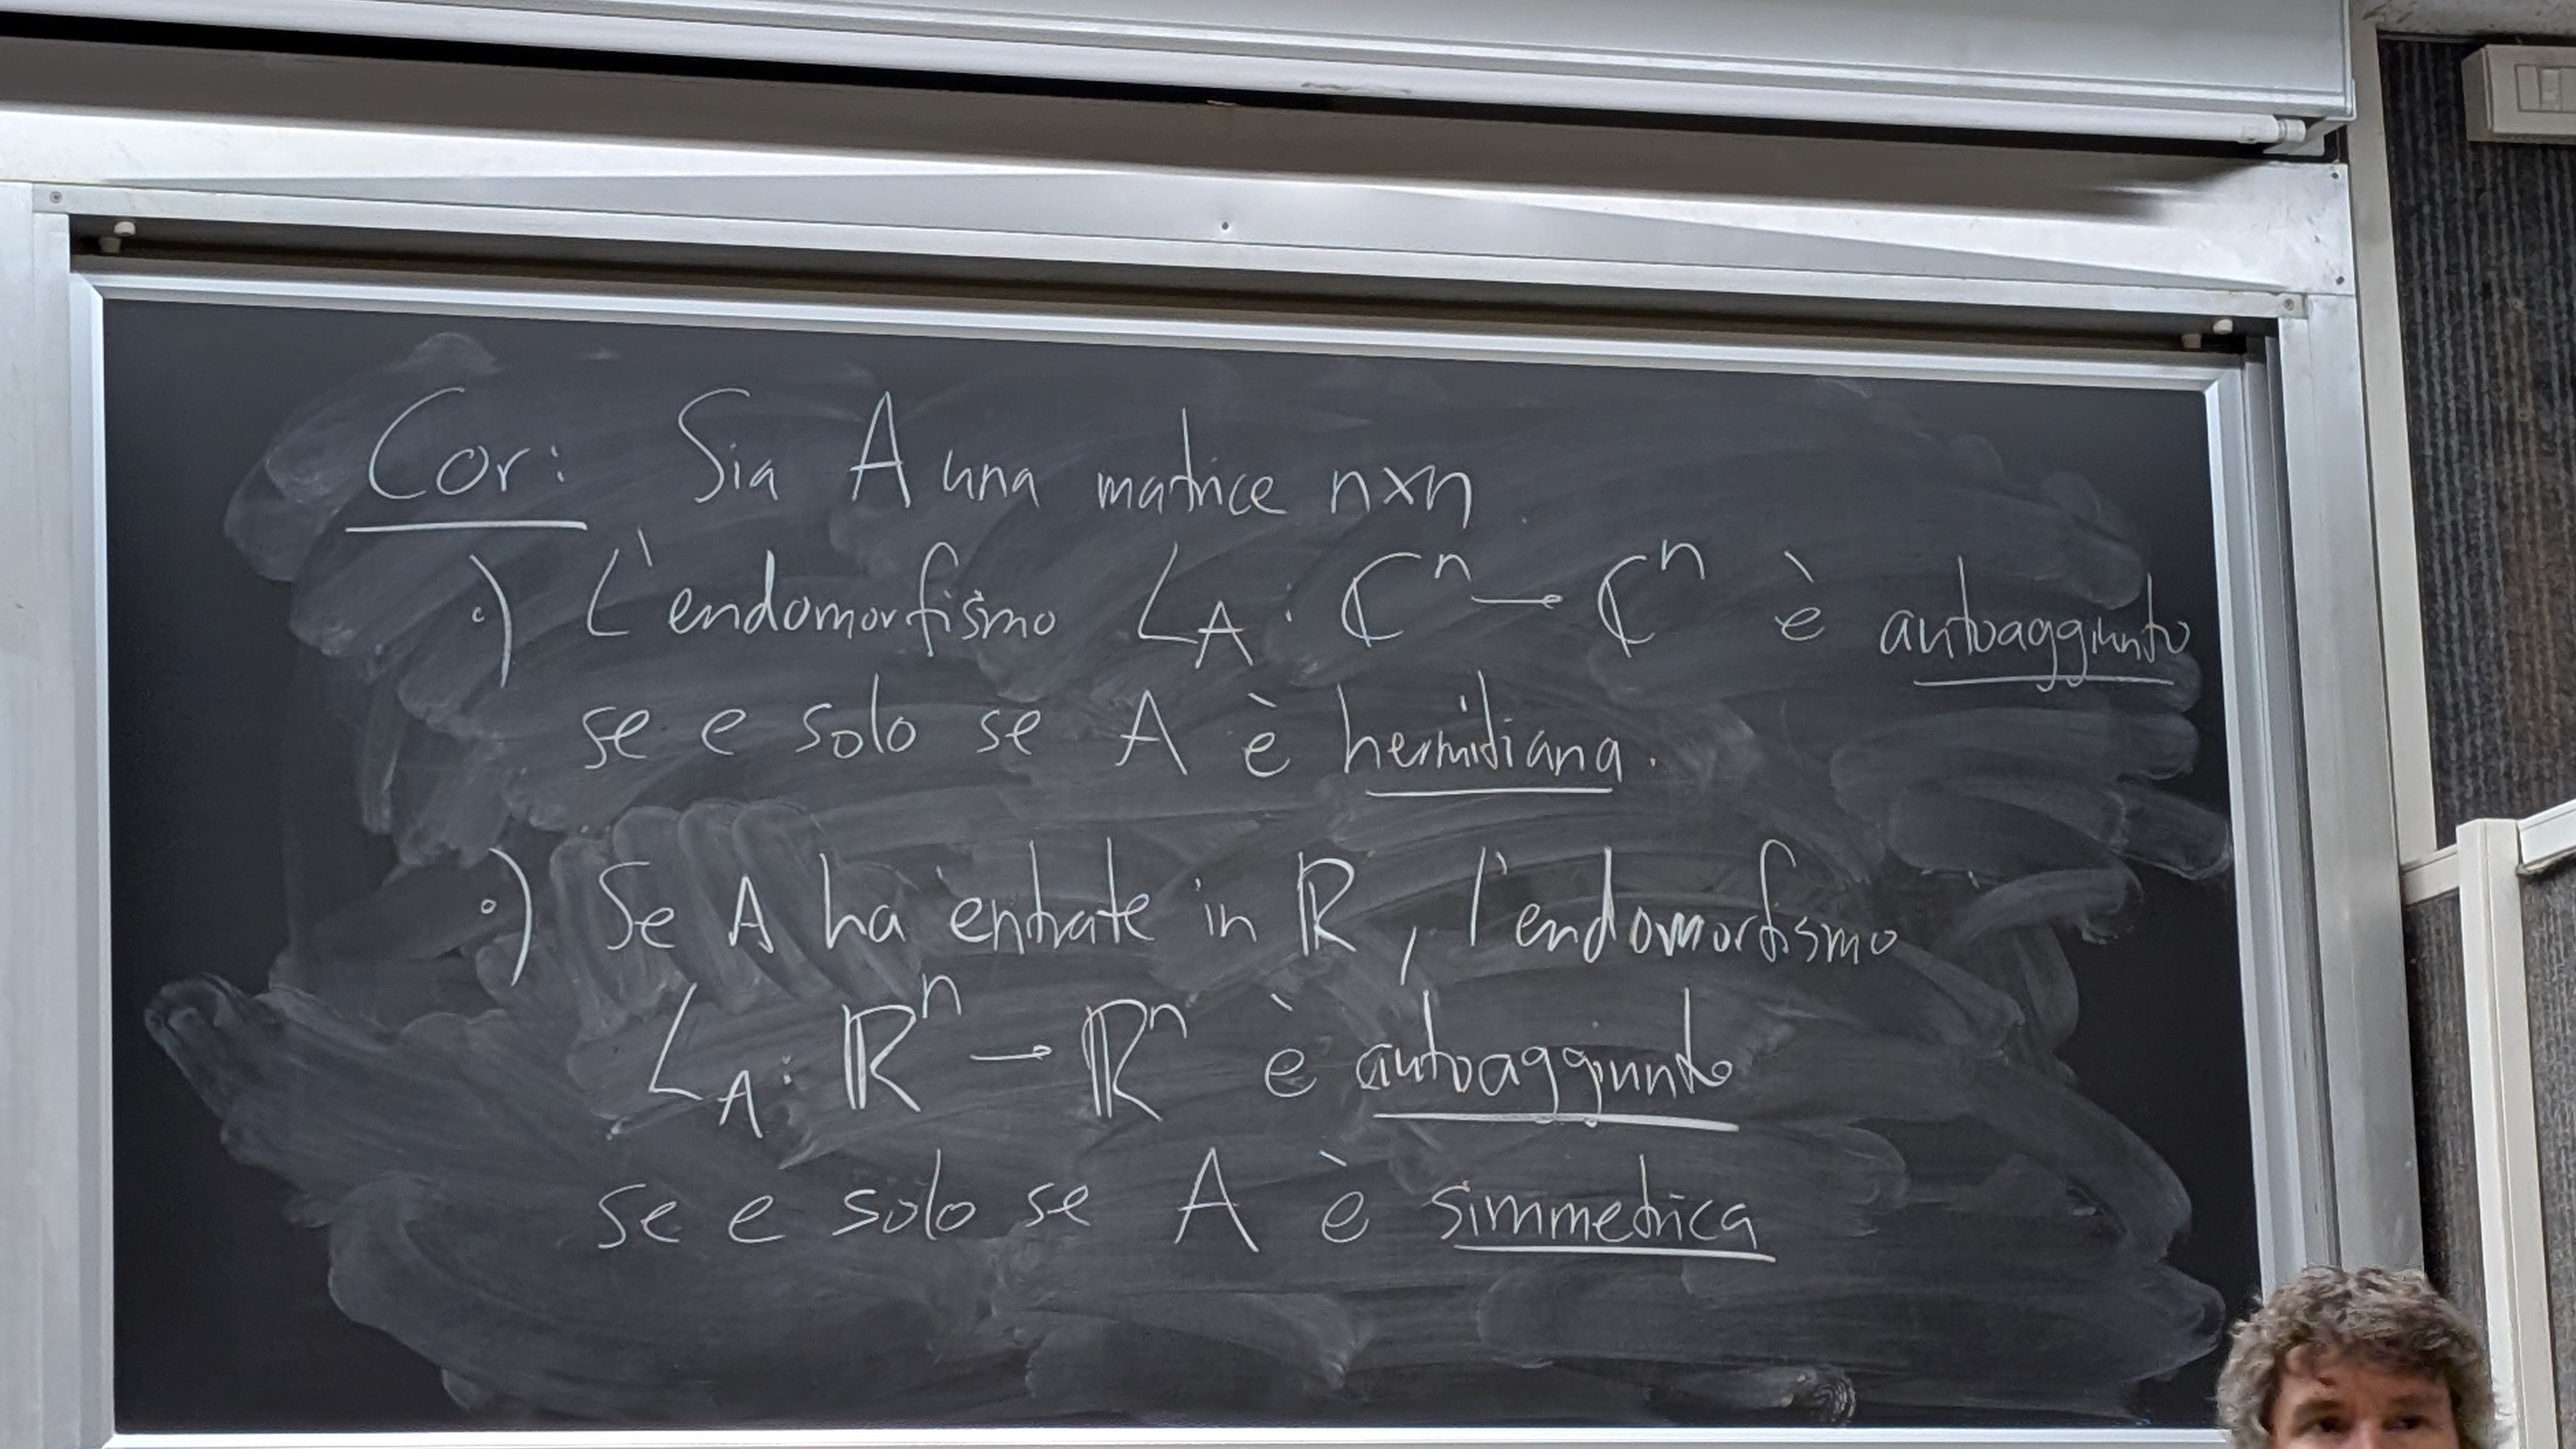 Cor: Sia A una matrice n×n.
∘) L'endomorfismo L_A : ℂⁿ → ℂⁿ è autoaggiunto
se e solo se A è hermitiana.
∘) Se A ha entrate in ℝ, l'endomorfismo
L_A : ℝⁿ → ℝⁿ è autoaggiunto
se e solo se A è simmetrica